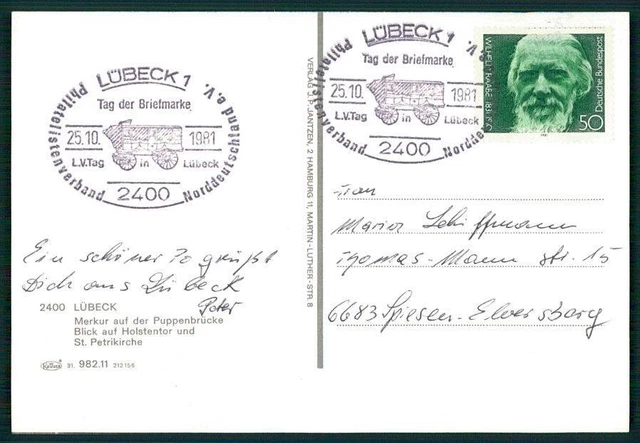 LÜBECK 1
Tag der Briefmarke
25.10. 1981
L.V.Tag in Lübeck
2400
Philatelistenverband Norddeutschland e.V.
LÜBECK 1
Tag der Briefmarke
25.10. 1981
L.V.Tag in Lübeck
2400
Philatelistenverband Nordde e.V.
WILHELM RAABE 1831-1910
Deutsche Bundespost
50
Ein schöner grüßt
Dich aus Lübeck
Peter
2400 LÜBECK
Merkur auf der Puppenbrücke
Blick auf Holstentor und
St. Petrikirche
31. 982.11 212156
VERLAG J. JANTZEN, 2 HAMBURG 11, MARTIN-LUTHER-STR. 8
Frau
Maria Schiffmann
Thomas-Mann Str. 15
6683 Spiesen-Elversberg